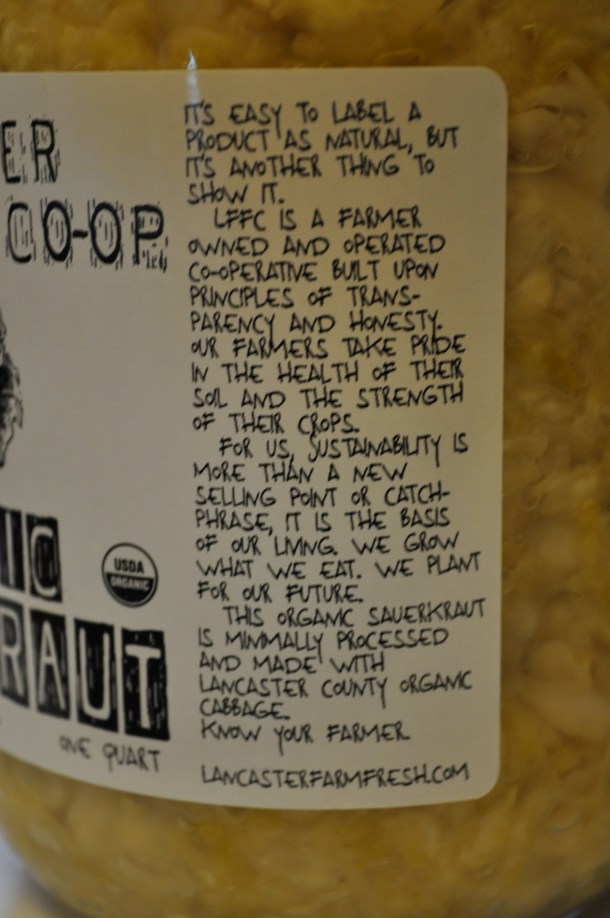 ER
CO-OP
IT'S EASY TO LABEL A
PRODUCT AS NATURAL, BUT
IT'S ANOTHER THING TO
SHOW IT.
LFFC IS A FARMER
OWNED AND OPERATED
CO-OPERATIVE BUILT UPON
PRINCIPLES OF TRANS-
PARENCY AND HONESTY.
OUR FARMERS TAKE PRIDE
IN THE HEALTH OF THEIR
SOIL AND THE STRENGTH
OF THEIR CROPS.
FOR US, SUSTAINABILITY IS
MORE THAN A NEW
SELLING POINT OR CATCH-
PHRASE, IT IS THE BASIS
OF OUR LIVING. WE GROW
WHAT WE EAT. WE PLANT
FOR OUR FUTURE.
THIS ORGANIC SAUERKRAUT
IS MINIMALLY PROCESSED
AND MADE WITH
LANCASTER COUNTY ORGANIC
CABBAGE.
KNOW YOUR FARMER
LANCASTERFARMFRESH.COM
IC
USDA
ORGANIC
RAUT
ONE QUART